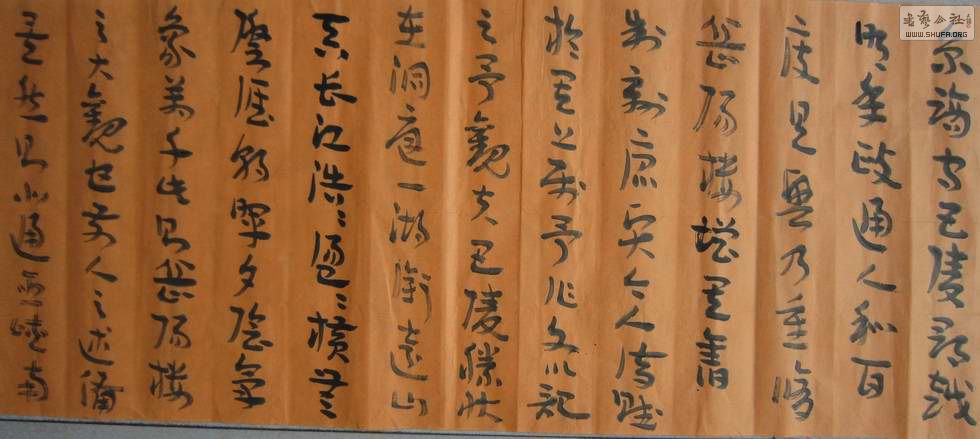 京謫守巴陵郡越
明年政通人和百
废具興乃重修
岳陽樓增其舊
制刻唐賢今人诗赋
於其上属予作文以記
之予觀夫巴陵勝状
在洞庭一湖銜遠山
吞長江浩〻湯〻橫無
際涯朝暉夕陰氣
象萬千此則岳陽樓
之大觀也前人之述備
矣然則北通巫峽南
書藝公社
WWW.SHUFA.ORG